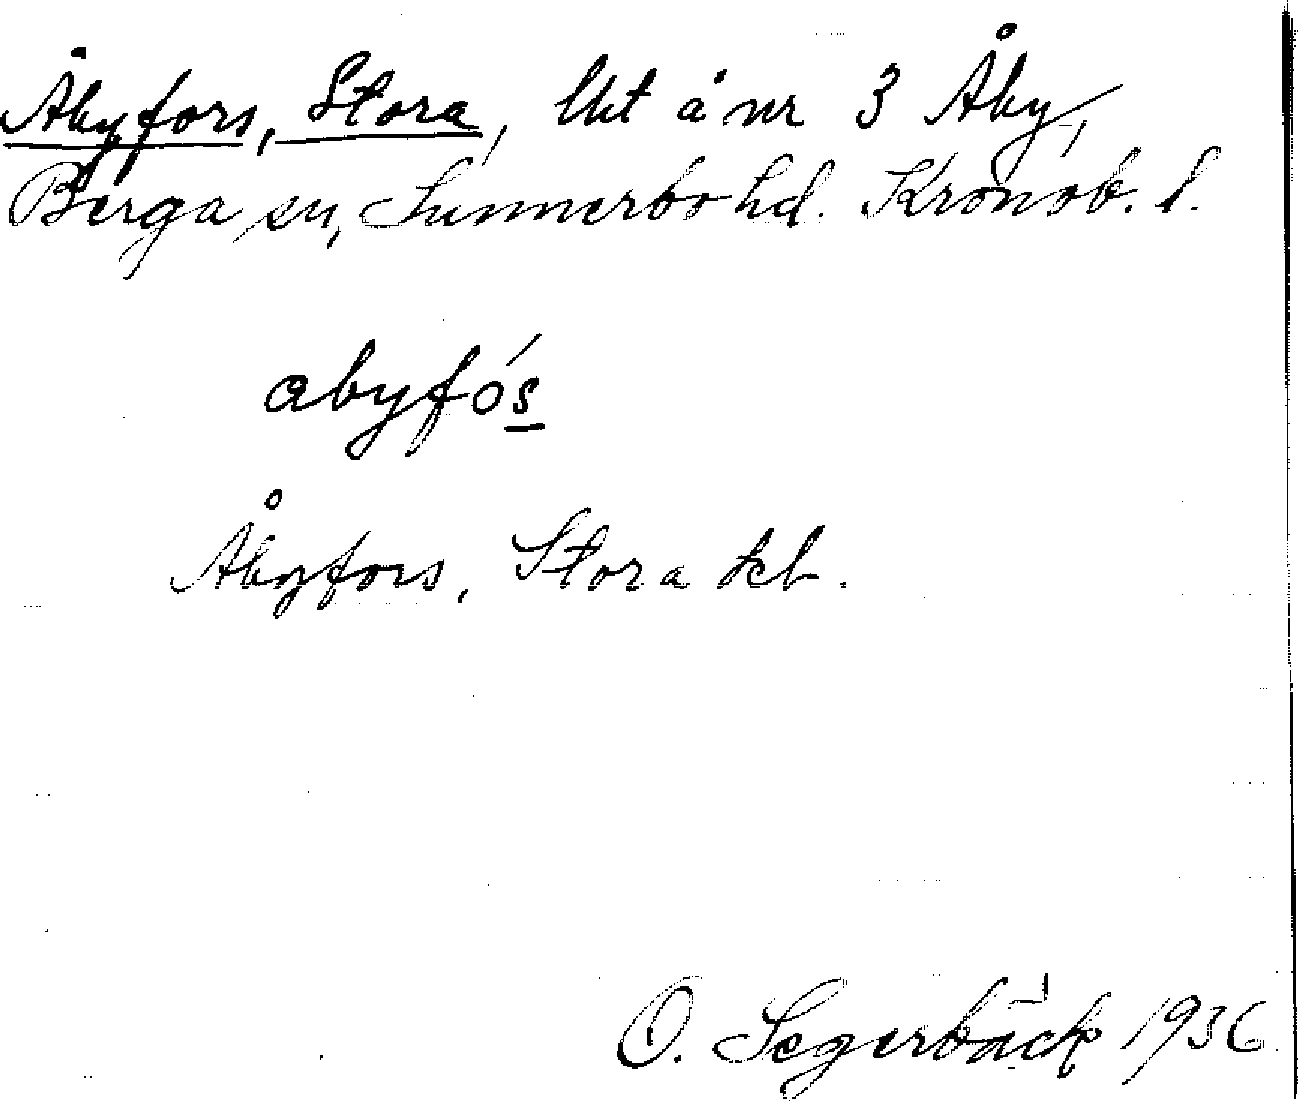 Åbyfors, Stora, lht å nr 3 Åby,
Berga sn, Sunnerbo hd. Kronob. l.
abyfós
Åbyfors, Stora kbl.
O. Segerbäck 1936